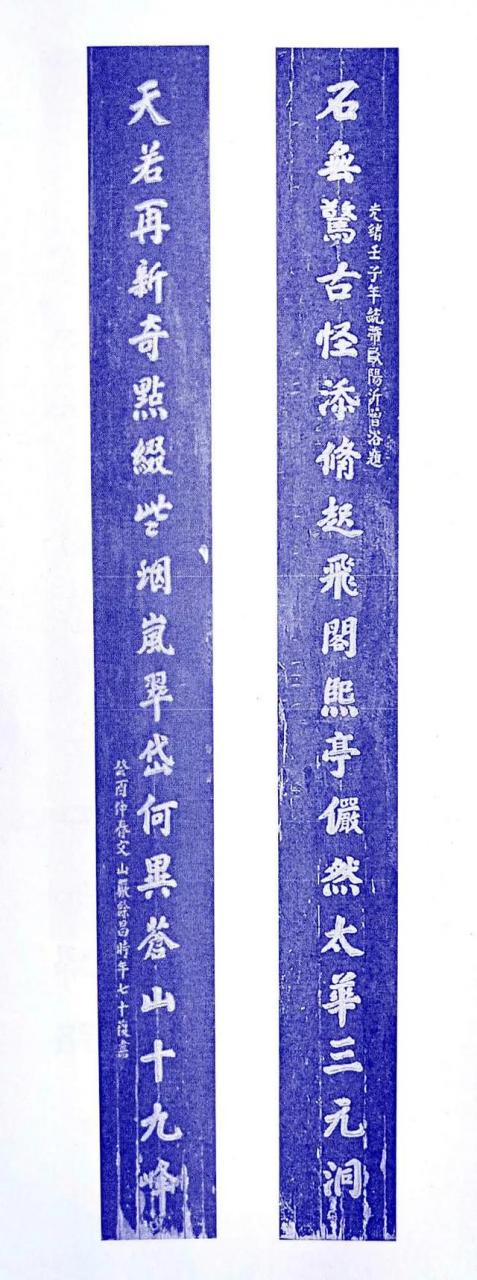 石無驚古怪添脩起飛閣熙亭儼然太華三元洞
光緒壬子年 歐陽沂曾浴題
天若再新奇點綴些烟嵐翠岱何異蒼山十九峰
癸酉仲春文山嚴餘昌時年七十復書